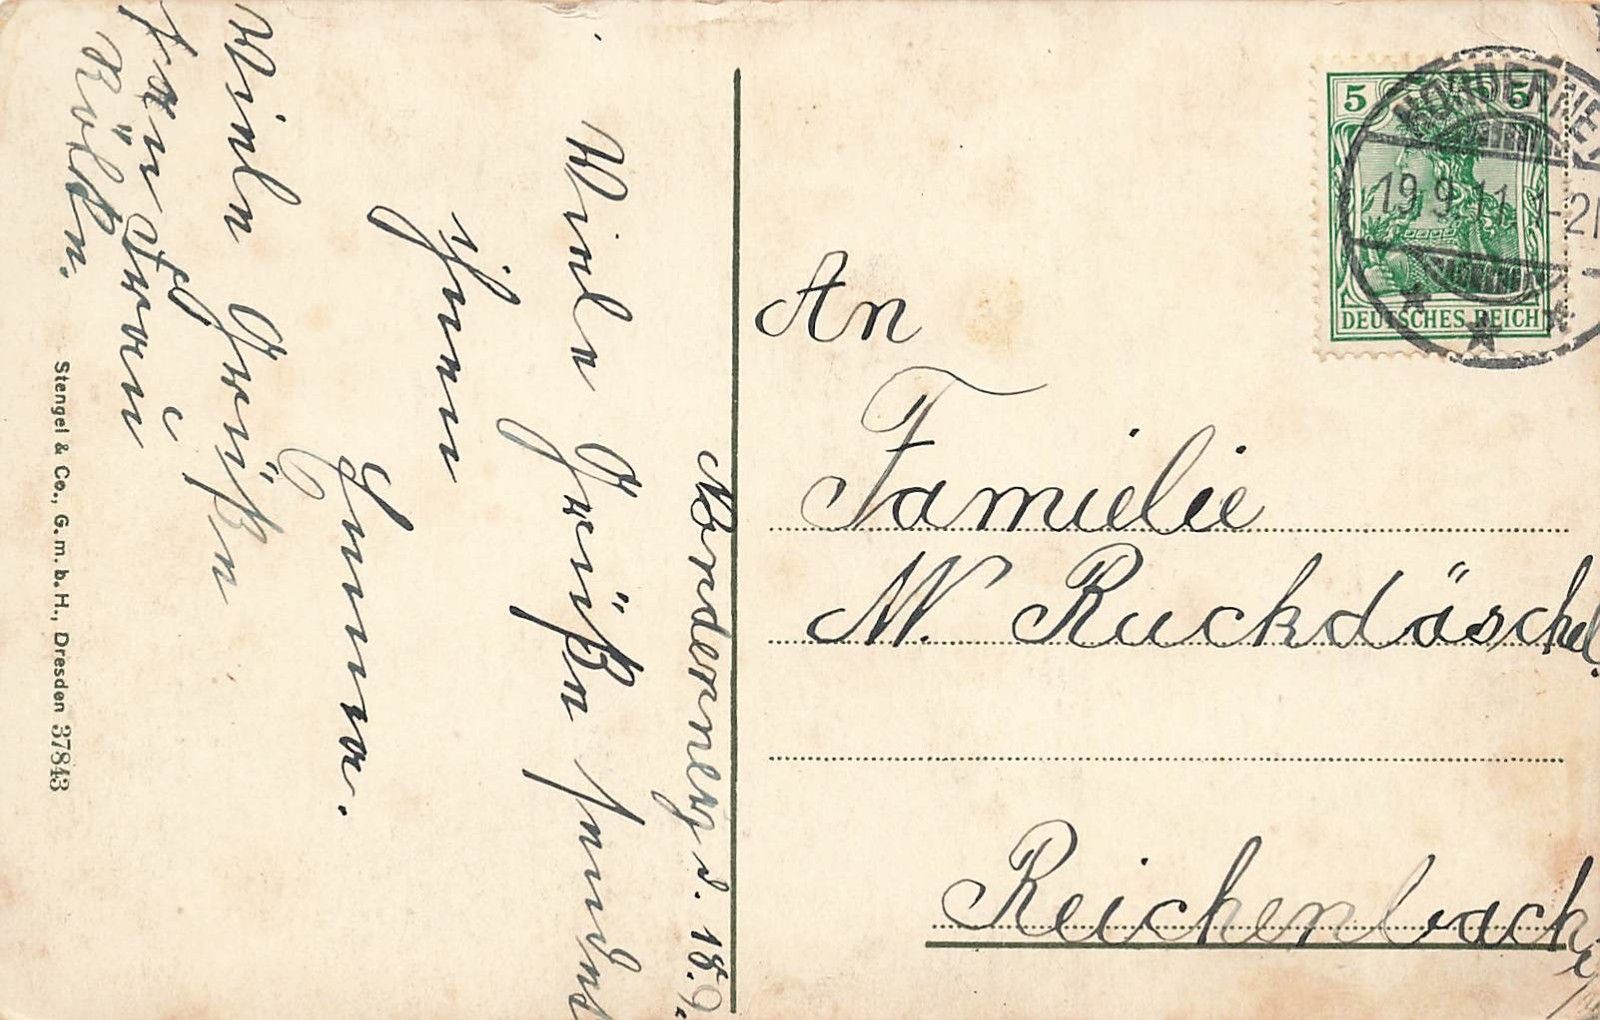 Norderney d. 18. 9.
Viele Grüße sendet
Ihnen
Emma.
Viele Grüße
an Frau
Stengel & Co., G. m. b. H., Dresden 37843
5 5
DEUTSCHES REICH
NORDERNEY
19.9.11. -2
An
Familie
W. Ruckdäschel.
Reichenbach